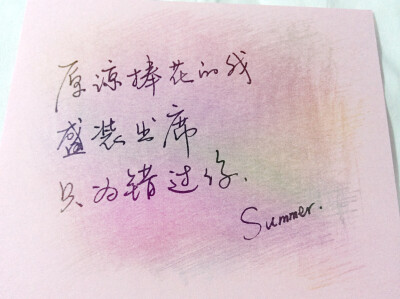 原谅捧花的我
盛装出席
只为错过你.
Summer.